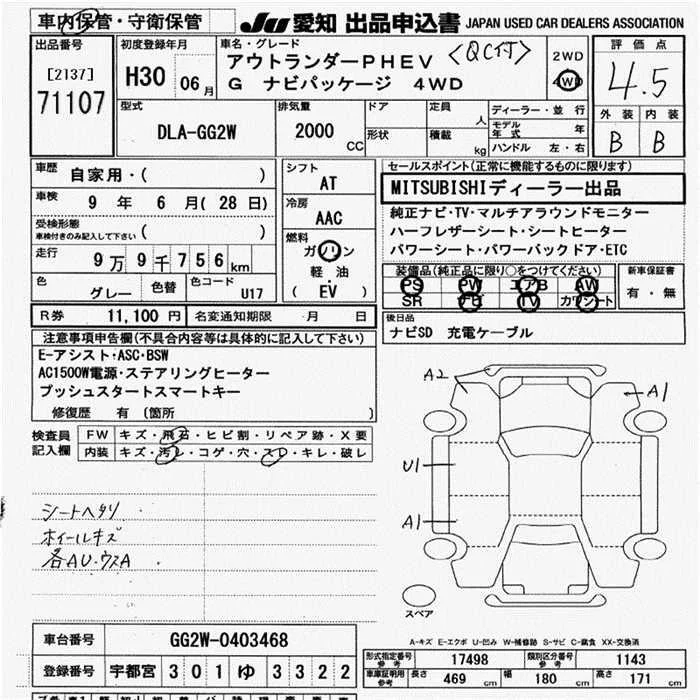 車内保管・守衛保管
JU 愛知 出品申込書 JAPAN USED CAR DEALERS ASSOCIATION
出品番号
[2137]
71107
初度登録年月
H30 06月
車名・グレード
アウトランダーPHEV <QC付>
G ナビパッケージ 4WD
2WD
4WD
評価点
4.5
外装 内装
B B
型式
DLA-GG2W
排気量
2000 CC
ドア
形状
定員 人
積載 kg
ディーラー・並行
モデル年式 年
ハンドル 左・右
車歴 自家用・( )
車検 9年 6月(28日)
受検形態
車検付きのみ記入して下さい ( )
走行 9万9千756km
色 グレー 色替 色コード U17
シフト
AT
冷房
AAC
燃料
ガソリン
軽油
( EV )
セールスポイント(正常に機能するものに限ります)
MITSUBISHIディーラー出品
純正ナビ・TV・マルチアラウンドモニター
ハーフレザーシート・シートヒーター
パワーシート・パワーバックドア・ETC
装備品(純正品に限り○をつけてください)
PS PW エアB AW
SR ナビ TV カワシート
新車保証書
有・無
後日品
ナビSD 充電ケーブル
R券 11,100円 名変通知期限 月 日
注意事項申告欄(不具合内容等は具体的に記入して下さい)
E-アシスト・ASC・BSW
AC1500W電源・ステアリングヒーター
プッシュスタートスマートキー
修復歴 有 (箇所 )
検査員記入欄
FW キズ・飛石・ヒビ割・リペア跡・X要
内装 キズ・汚レ・コゲ・穴・スレ・キレ・破レ
シートヘタリ
ホイールキズ
各AU・ウスA
A2
A1
U1
A1
スペア
A-キズ E-エクボ U-凹み W-補修跡 S-サビ C-腐食 XX-交換済
車台番号 GG2W-0403468
登録番号 宇都宮 301 ゆ 3322
形式指定番号 参考 17498 類別区分番号 参考 1143
車庫証明用 参考 長さ 469 cm 幅 180 cm 高さ 171 cm